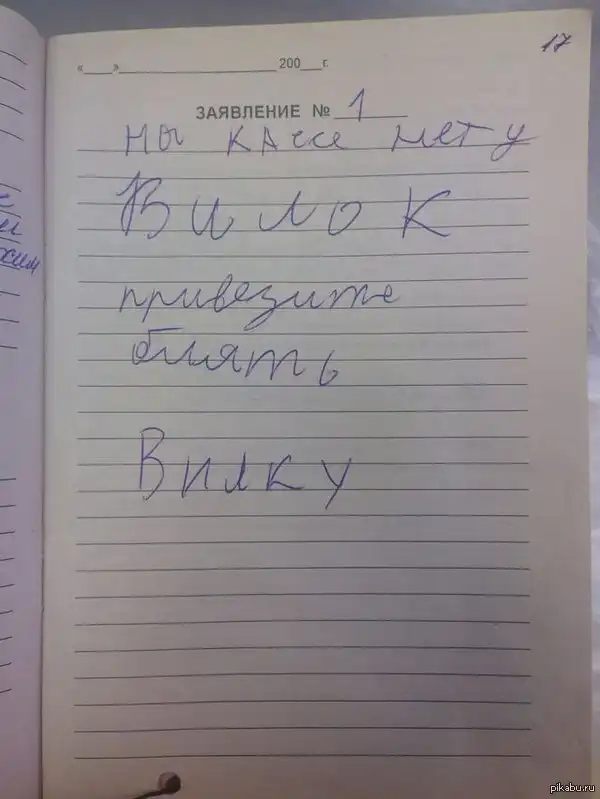 17
«___»____________________200___г.
ЗАЯВЛЕНИЕ № 1
на кассе нету
Вилок
привезите
блять
Вилку
pikabu.ru